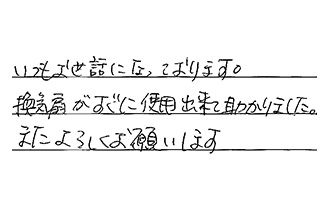 いつもお世話になっております。
換気扇がすぐに使用出来て助かりました。
またよろしくお願いします